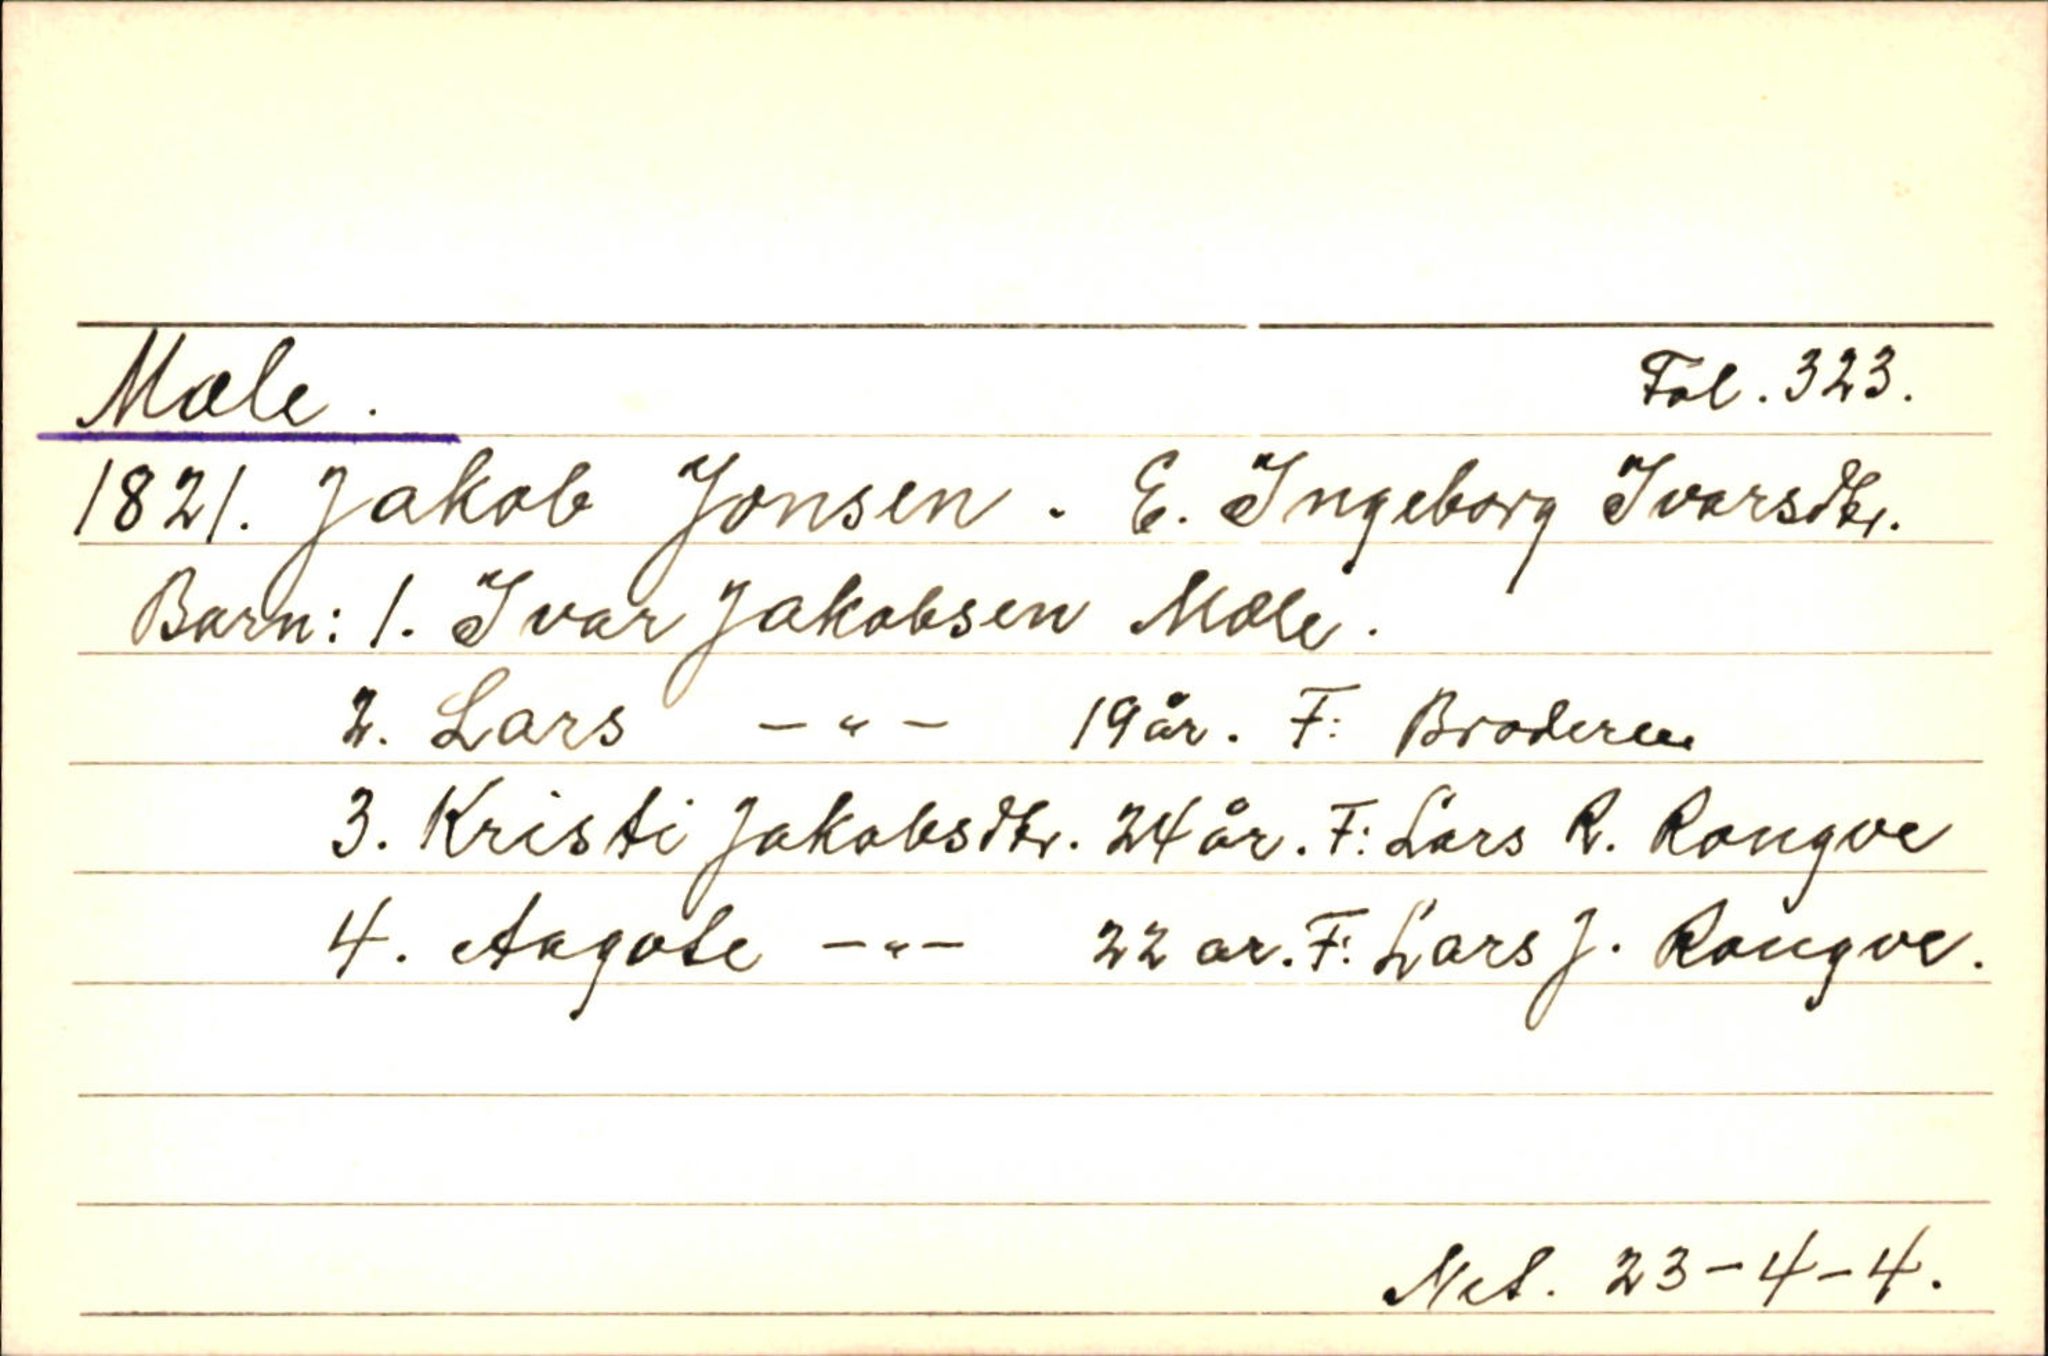 Mæle. Fol. 323.
1821. Jakob Jonsen. E. Ingeborg Ivarsdtr.
Barn: 1. Ivar Jakobsen Mæle.
2. Lars —"— 19 år. F: Broderen
3. Kristi Jakobsdtr. 24 år. F: Lars R. Rongve
4. Aagote —"— 22 ar. F: Lars J. Rongve.
Net. 23-4-4.